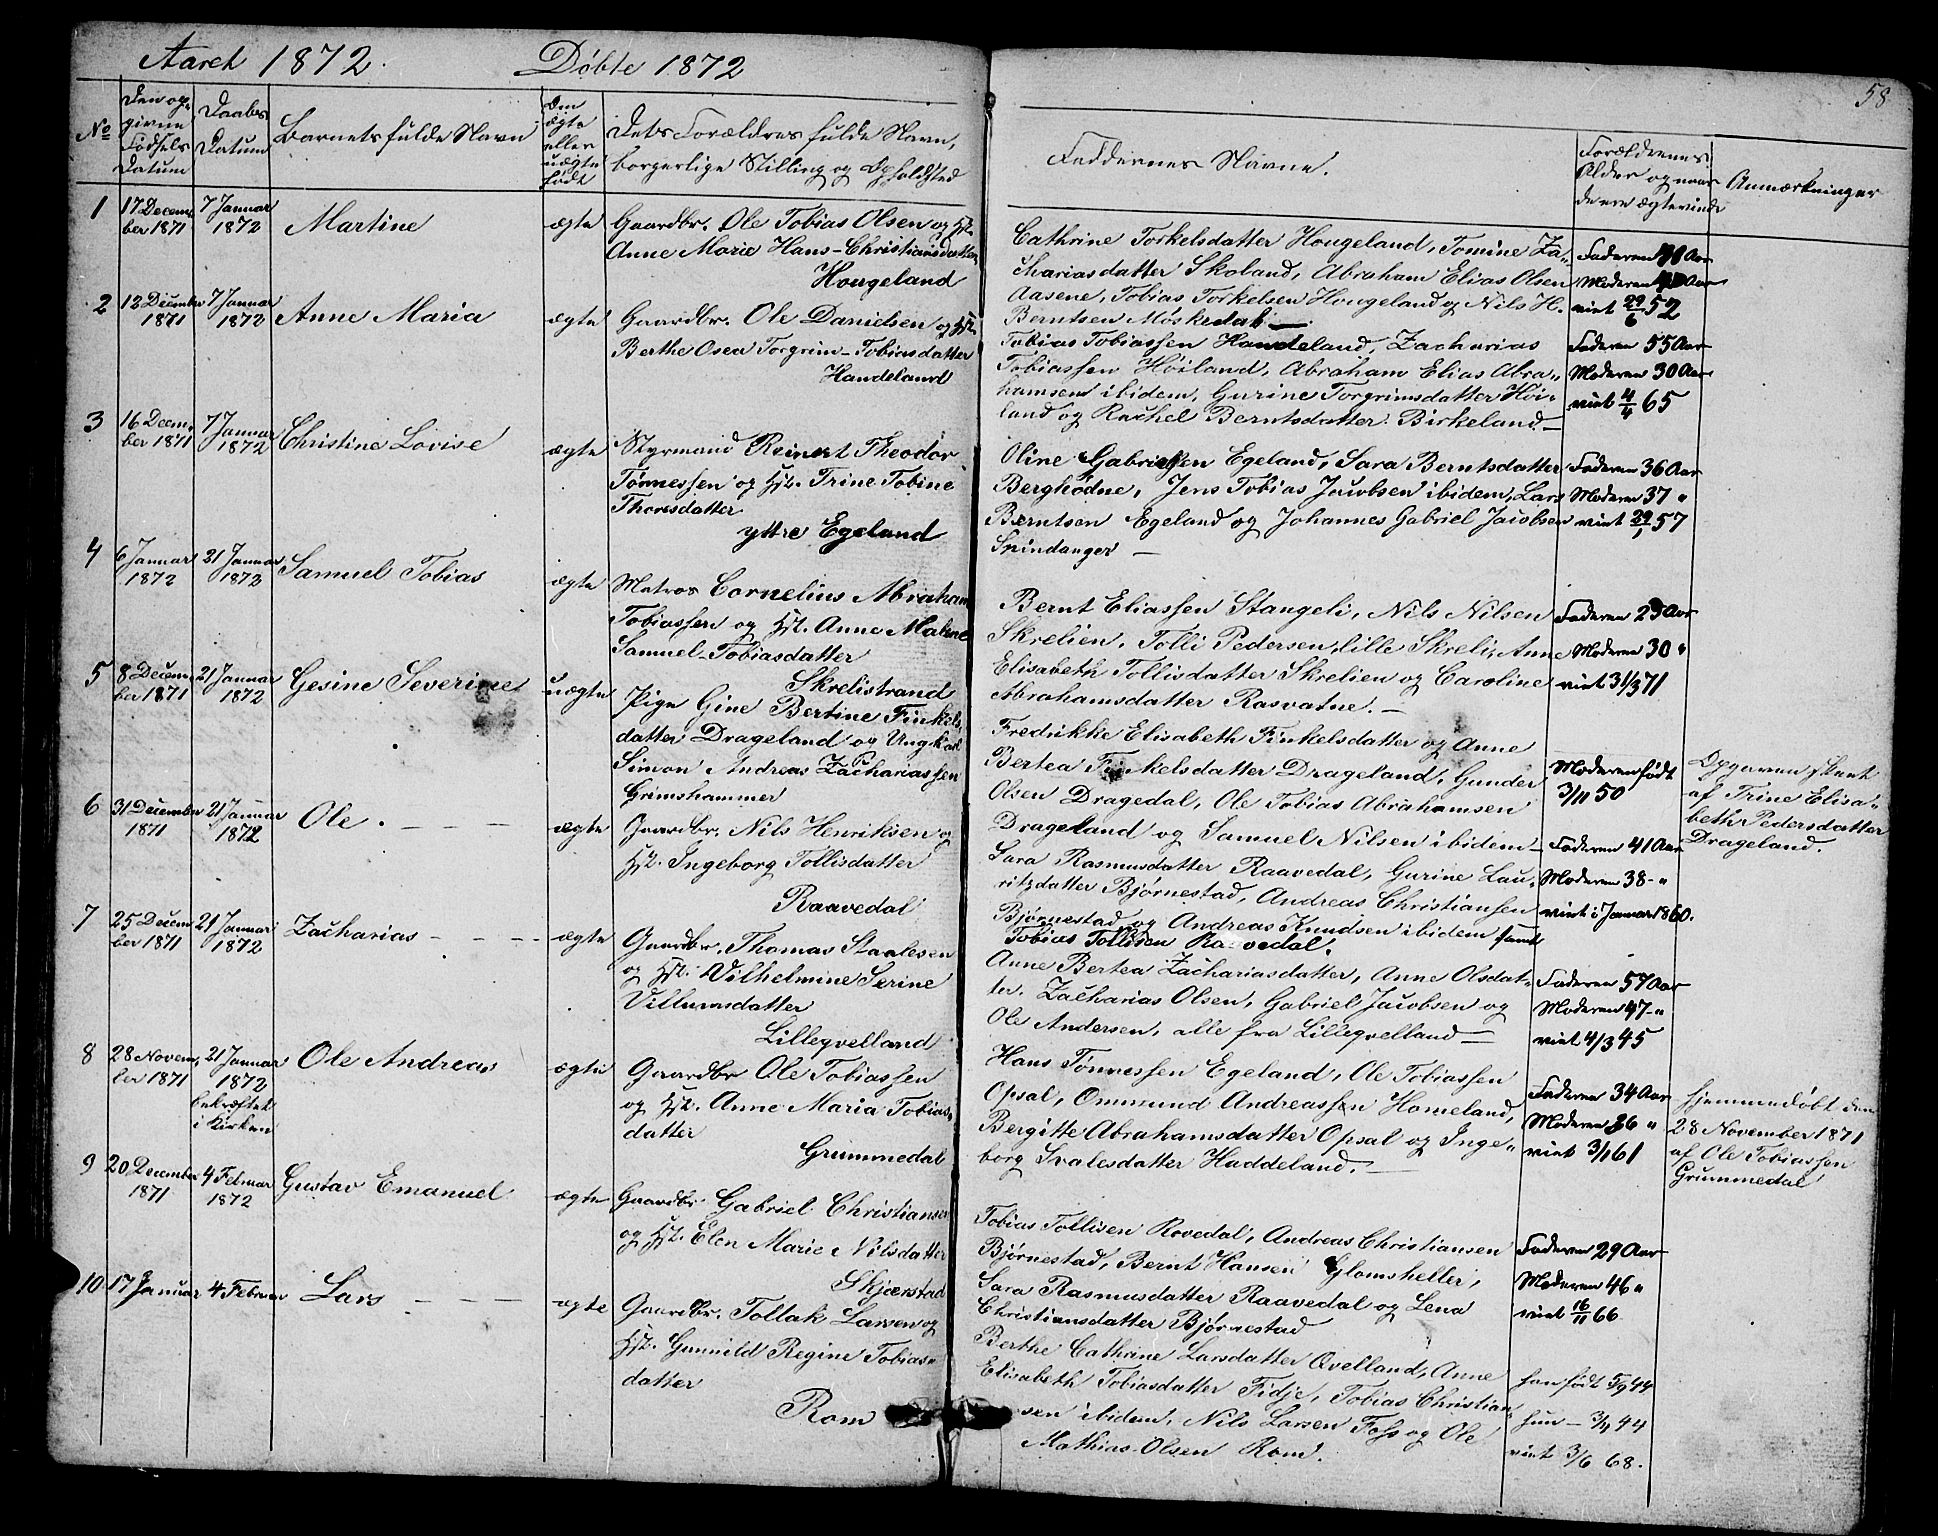 Aaret 1872.
Døbte 1872
58
No
Den op-
givne
Fødsels
Datum
Daabs
Datum
Barnets fulde Navn
Om
ægte
eller
uægte
født
Dets Forældres fulde Navn,
borgerlige Stilling og Opholdsted
Faddernes Navne.
Forældrenes
Alder og naar
de ere ægteviede
Anmærkninger
1
17 Decem-
ber 1871
7 Januar
1872
Martine
ægte
Gaardbr. Ole Tobias Olsen og Hst.
Anne Marie Hans-Christiansdatter
Hougeland
Cathrine Torkelsdatter Hougeland, Tomine Za-
chariasdatter Skoland, Abraham Elias Olsen
Aasene, Tobias Torkelsen Hougeland og Nils H.
Berntsen Møskedal —
Faderen 41 Aar
Moderen Aar
viet 29/6 52
2
12 December
1871
7 Januar
1872
Anne Maria
ægte
Gaardbr. Ole Danielsen og Hst.
Berthe Osea Torgrim-Tobiasdatter
Handeland
Tobias Tobiassen Handeland, Zacharias
Tobiassen Høiland, Abraham Elias Abra-
hamsen ibidem, Gurine Torgrimsdatter Høi-
land og Rachel Berntsdatter Birkeland —
Faderen 55 Aar
Moderen 30 Aar
viet 4/4 65
3
16 Decem-
ber 1871
7 Januar
1872
Christine Lovise
ægte
Styrmand Reinert Theodor
Tønnessen og Hst. Trine Tobine
Thorsdatter
yttre Egeland
Oline Gabrielsen Egeland, Sara Berntsdatter
Berghødne, Jens Tobias Jacobsen ibidem, Lars
Berntsen Egeland og Johannes Gabriel Jacobsen
Spindanger —
Faderen 36 Aar
Moderen 37 "
viet 29/1 57
4
6 Januar
1872
21 Januar
1872
Samuel Tobias
ægte
Matros Cornelius Abraham
Tobiassen og Hst. Anne Malene
Samuel-Tobiasdatter
Skrelistrand
Bernt Eliassen Stangeli, Nils Nilsen
Skrelien, Tolli Pedersen lille Skreli, Anne
Elisabeth Tollisdatter Skrelien og Caroline
Abrahamsdatter Rasvatne. —
Faderen 25 Aar
Moderen 30 "
viet 31/3 71
5
8 Decem-
ber 1871
21 Januar
1872
Gesine Severine
uægte
Pige Gine Bertine Finkels-
datter Drageland og Ungkarl
Simon Andreas Zachariassen
Grimshammer
Fredrikke Elisabeth Finkelsdatter og Anne
Bertea Finkelsdatter Drageland, Gunder
Olsen Dragedal, Ole Tobias Abrahamsen
Drageland og Samuel Nilsen ibidem —
Moderen født
3/11 50
Opgaven skeet
af Trine Elisa-
beth Pedersdatter
Drageland.
6
31 December
1871
21 Januar
1872
Ole. — — —
ægte
Gaardbr. Nils Henriksen og
Hst. Ingeborg Tollisdatter
Raavedal
Sara Rasmusdatter Raavedal, Gurine Lau-
ritzdatter Bjørnestad, Andreas Christiansen
Bjørnestad og Andreas Knudsen ibidem samt
Tobias Tollisen Raavedal.
Faderen 41 Aar
Moderen 38 - "
viet i Januar 1860.
7
25 Decem-
ber 1871
21 Januar
1872
Zacharias — — — —
ægte
Gaardbr. Thomas Staalesen
og Hst. Vilhelmine Serine
Villumsdatter
Lilleqvelland
Anne Bertea Zachariasdatter, Anne Olsdat-
ter. Zacharias Olsen, Gabriel Jacobsen og
Ole Andersen, alle fra Lilleqvelland —
Faderen 57 Aar
Moderen 47 - "
viet 4/3 45
8
28 Novem-
ber 1871
21 Januar
1872
bekræftet
i Kirken
Ole Andreas
ægte
Gaardbr Ole Tobiassen
og Hst. Anne Maria Tobias-
datter
Grummedal
Hans Tønnessen Egeland, Ole Tobiassen
Opsal, Ommund Andreassen Homeland,
Bergitte Abrahamsdatter Opsal og Inge-
borg Svalesdatter Haddeland. —
Faderen 34 Aar
Moderen 36 "
viet 3/1 61
hjemmedøbt den
28 November 1871
af Ole Tobiassen
Grummedal
9
20 December
1871
4 Februar
1872
Gustav Emanuel
ægte
Gaardbr Gabriel Christiansen
og Hst. Elen Marie Nilsdatter
Skjærstad
Tobias Tollisen Rovedal, Andreas Christiansen
Bjørnestad, Bernt Hansen Glomsheller,
Sara Rasmusdatter Raavedal og Lena
Christiansdatter Bjørnestad
Faderen 29 Aar
Moderen 46 "
viet 16/11 66
10
17 Januar
4 Februar
Lars — — —
ægte
Gaardbr. Tollak Larsen og
Hst. Gunnild Regine Tobias-
datter
Rom
Berthe Cathrine Larsdatter Qvelland, Anne
Elisabeth Tobiasdatter Fidje, Tobias Christian-
sen ibidem, Nils Larsen Foss og Ole
Mathias Olsen Rom.
han født 5/9 44
hun — 3/4 44
viet 3/6 68.